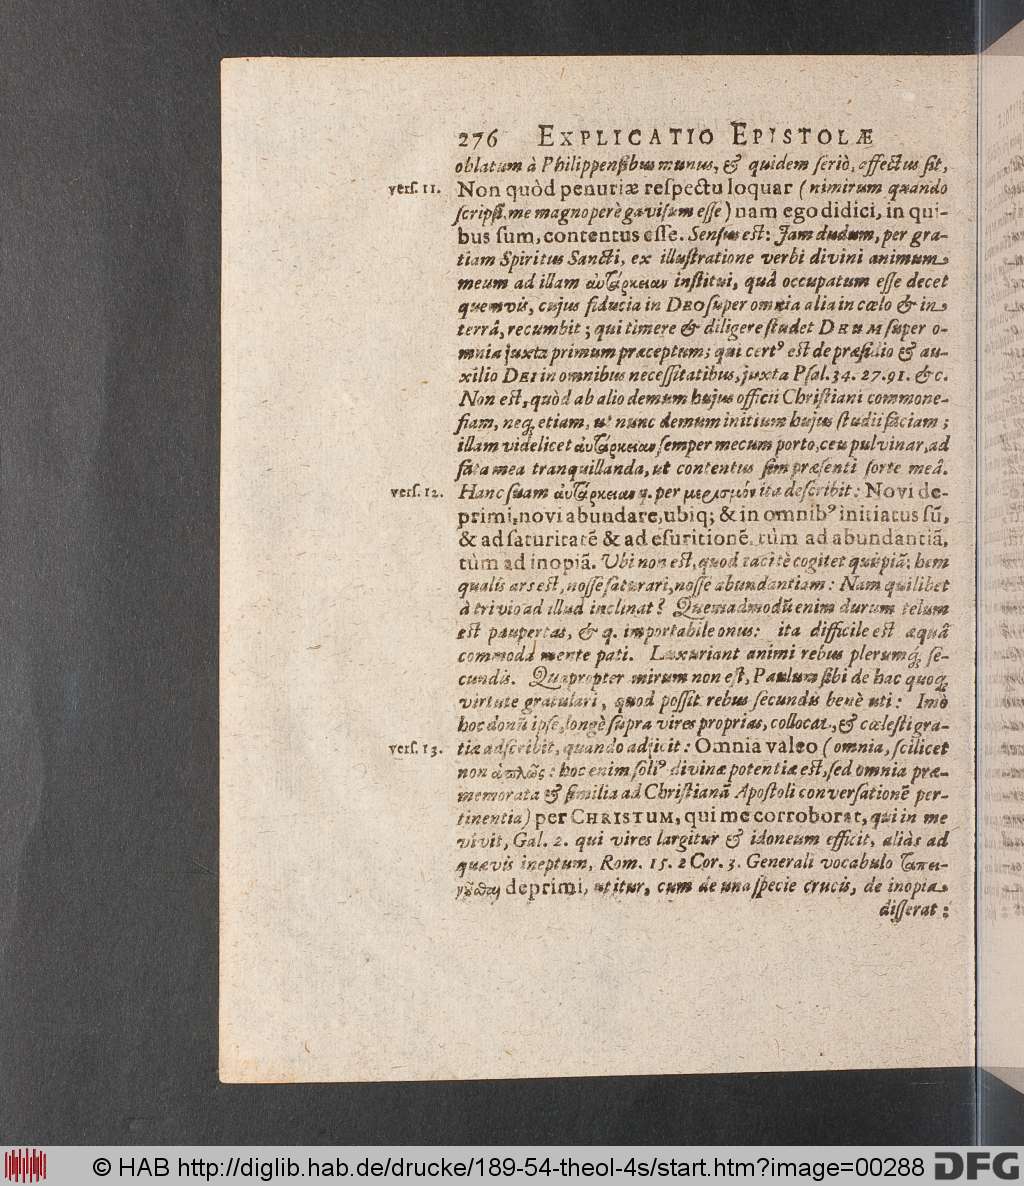 276 EXPLICATIO EPISTOLÆ
oblatum à Philippensibus munus, & quidem seriò, affectus sit,
vers. 11. Non quòd penuriæ respectu loquar (nimirum quando
scripsi, me magnoperè gavisum esse) nam ego didici, in qui-
bus sum, contentus esse. Sensus est: Jam dudum, per gra-
tiam Spiritus Sancti, ex illustratione verbi divini animum
meum ad illam αὐτάρκειαν institui, quâ occupatum esse decet
quemvis, cujus fiducia in DEO super omnia alia in cœlo & in
terrâ, recumbit; qui timere & diligere studet DEUM super o-
mnia juxta primum præceptum; qui certꝰ est de præsidio & au-
xilio DEI in omnibus necessitatibus, juxta Psal. 34. 27. 91. &c.
Non est, quòd ab alio demum hujus officii Christiani commone-
fiam, neq; etiam, ut nunc demum initium hujus studii faciam;
illam videlicet αὐτάρκειαν semper mecum porto, ceu pulvinar, ad
fata mea tranquillanda, ut contentus sim præsenti sorte meâ.
vers. 12. Hanc suam αὐτάρκειαν q. per μερισμόν ita describit: Novi de-
primi, novi abundare, ubiq; & in omnibꝰ initiatus sū,
& ad saturitatē & ad esuritionē, tùm ad abundantiā,
tùm ad inopiā. Ubi non est, quod tacitè cogitet quispiā; hem
qualis ars est, nosse saturari, nosse abundantiam: Nam quilibet
à trivio ad illud inclinat? Quemadmodū enim durum telum
est paupertas, & q. importabile onus: ita difficile est æquâ
commoda mente pati. Luxuriant animi rebus plerumq; se-
cundis. Quapropter mirum non est, Paulum sibi de hac quoq;
virtute gratulari, quod possit rebus secundis benè uti: Imò
hoc donū ipse, longè supra vires proprias, collocat, & cœlesti gra-
vers. 13. tiæ adscribit, quando adjicit: Omnia valeo (omnia, scilicet
non ἁπλῶς: hoc enim soliꝰ divinæ potentiæ est, sed omnia præ-
memorata & similia ad Christianā Apostoli conversationē per-
tinentia) per CHRISTUM, qui me corroborat, qui in me
vivit, Gal. 2. qui vires largitur & idoneum efficit, aliàs ad
quævis ineptum, Rom. 15. 2 Cor. 3. Generali vocabulo ταπει-
νοῦσθαι deprimi, utitur, cum de una specie crucis, de inopia
disserat:
© HAB http://diglib.hab.de/drucke/189-54-theol-4s/start.htm?image=00288 DFG